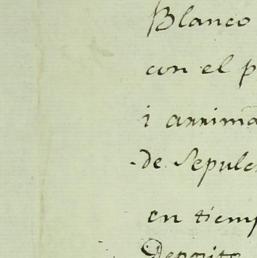 Blanco
con el p
i arrima
de Sepulc
en tiemp
Deposito